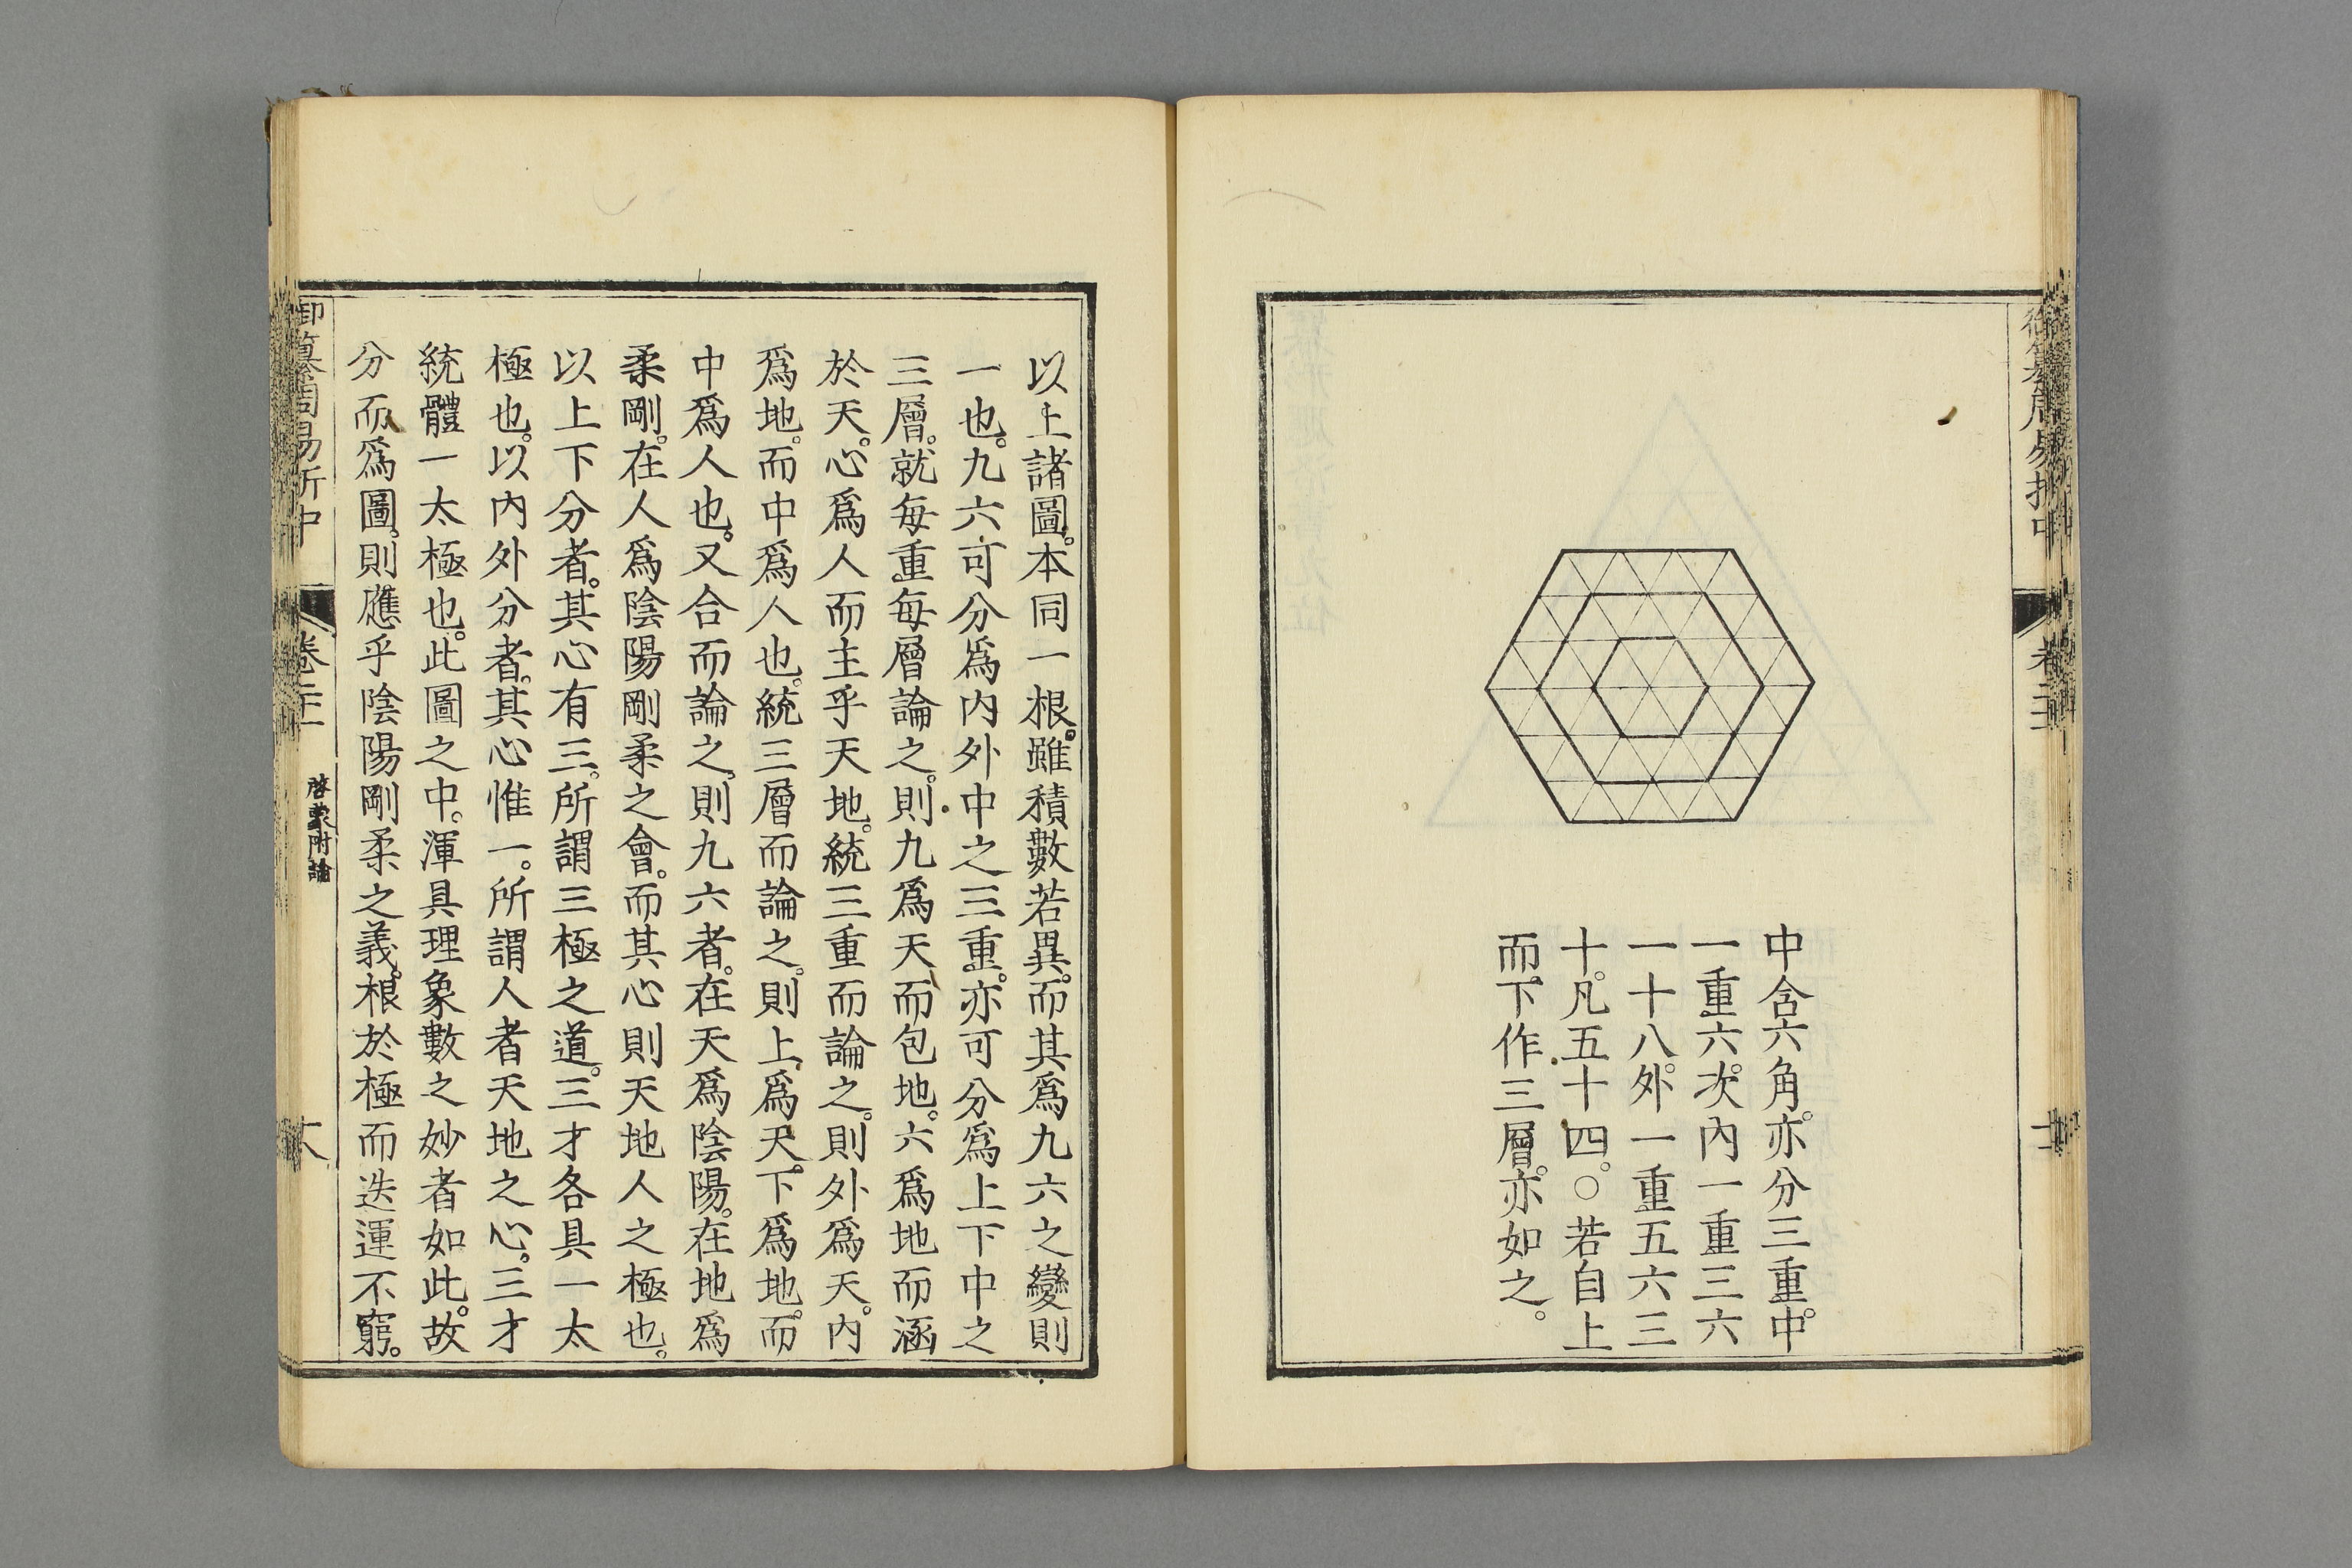 中含六角。亦分三重。中
一重六。次內一重三六
一十八。外一重五六三
十。凡五十四。○若自上
而下作三層。亦如之。
以上諸圖。本同一根。雖積數若異。而其爲九六之變則
一也。九六可分爲內外中之三重。亦可分爲上下中之
三層。就每重每層論之。則九爲天而包地。六爲地而涵
於天。心爲人而主乎天地。統三重而論之。則外爲天。內
爲地。而中爲人也。統三層而論之。則上爲天。下爲地。而
中爲人也。又合而論之。則九六者。在天爲陰陽。在地爲
柔剛。在人爲陰陽剛柔之會。而其心則天地人之極也。
以上下分者。其心有三。所謂三極之道。三才各具一太
極也。以內外分者。其心惟一。所謂人者天地之心。三才
統體一太極也。此圖之中。渾具理象數之妙者如此。故
分而爲圖。則應乎陰陽剛柔之義。根於極而迭運不窮。
御纂周易折中
啓蒙附論